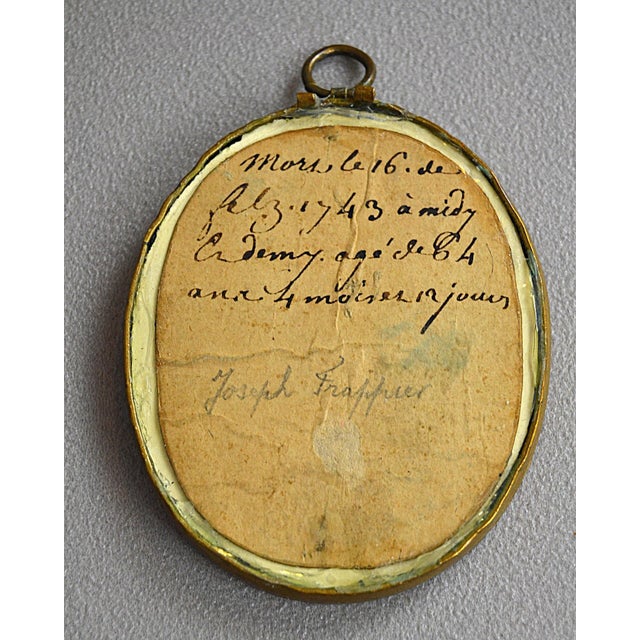 Mort le 16. de
febz. 1743 à midy
Et demy. agé de 64
ans 4 mois et 12 jours
Joseph Frappier